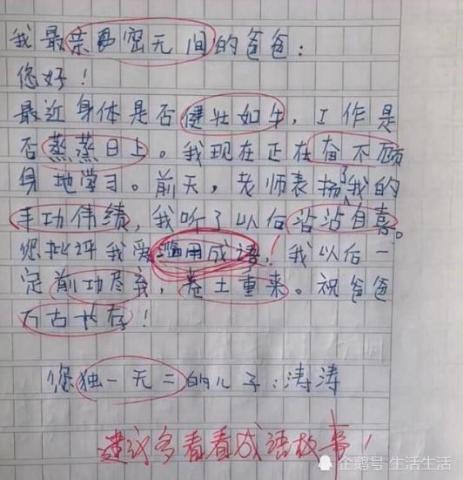 我最亲密无间的爸爸：
您好！
最近身体是否健壮如牛，工作是
否蒸蒸日上。我现在正在奋不顾
身地学习。前天，老师表扬了我的
丰功伟绩，我听了以后沾沾自喜。
您批评我爱滥用成语！我以后一
定前功尽弃，卷土重来。祝爸爸
万古长存！
您独一无二的儿子：涛涛
建议多看看成语故事！
企鹅号 生活生活